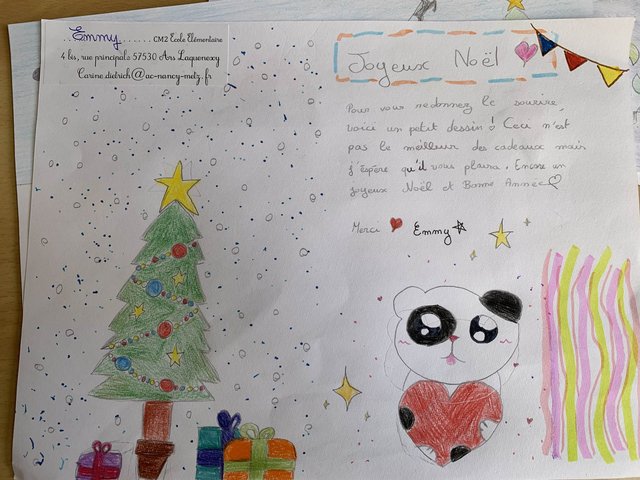 Emmy....... CM2 Ecole Elémentaire
4 bis, rue principale 57530 Ars Laquenexy
Carine.dietrich@ac-nancy-metz.fr
Joyeux Noël
Pour vous redonnez le sourire,
voici un petit dessin! Ceci n'est
pas le meilleur des cadeaux mais
j'éspère qu'il vous plaira. Encore un
joyeux Noël et Bonne Année
Merci Emmy